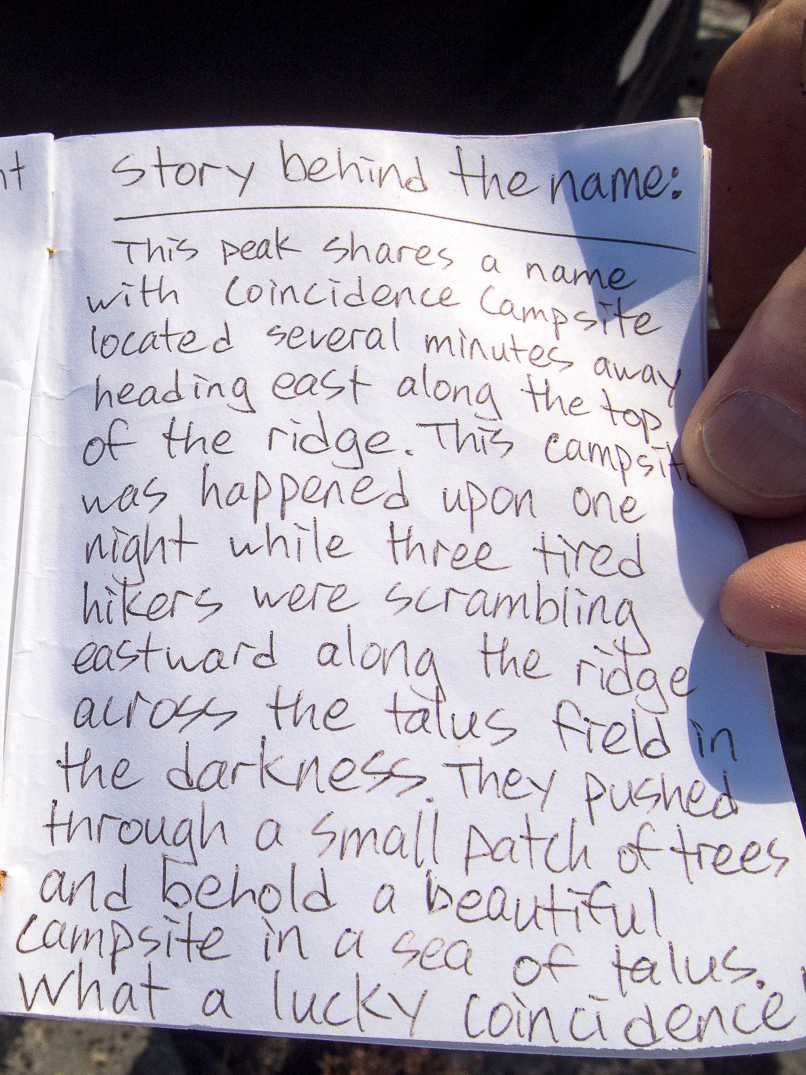 nt
Story behind the name:
This peak shares a name
with Coincidence Campsite
located several minutes away
heading east along the top
of the ridge. This campsite
was happened upon one
night while three tired
hikers were scrambling
eastward along the ridge
across the talus field in
the darkness. They pushed
through a small patch of trees
and behold a beautiful
campsite in a sea of talus.
What a lucky coincidence